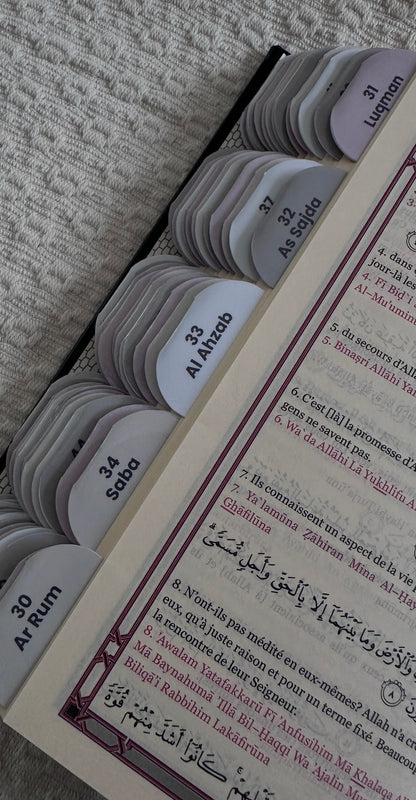 31
Luqman
37
32
As Sajda
33
Al Ahzab
44
34
Saba
30
Ar Rum
4. dans
jour-là les
4. Fī Biḍ
Al-Mu'minū
5. du secours d'Alla
5. Binaṣri Allāhi Ya
6. C'est [là] la promesse d'
gens ne savent pas.
6. Wa da Allāhi Lā Yukhlifu A
7. Ils connaissent un aspect de la vie
7. Ya`lamūna Žāhiran Mina Al-Ḥa
Ghāfilūna
وَٱلْأَرْضَ وَمَا بَيْنَهُمَآ إِلَّا بِٱلْحَقِّ وَأَجَلٍ مُّسَمًّى
8. N'ont-ils pas médité en eux-mêmes? Allah n'a cr
eux, qu'à juste raison et pour un terme fixé. Beaucoup
la rencontre de leur Seigneur.
8. 'Awalam Yatafakkarū Fī 'Anfusihim Mā Khalaqa Al
Mā Baynahumā 'Illā Bil-Ḥaqqi Wa 'Ajalin Mu
Bilqā'i Rabbihim Lakāfirūna
كَانُوٓا۟ أَشَدَّ مِنْهُمْ قُوَّةً